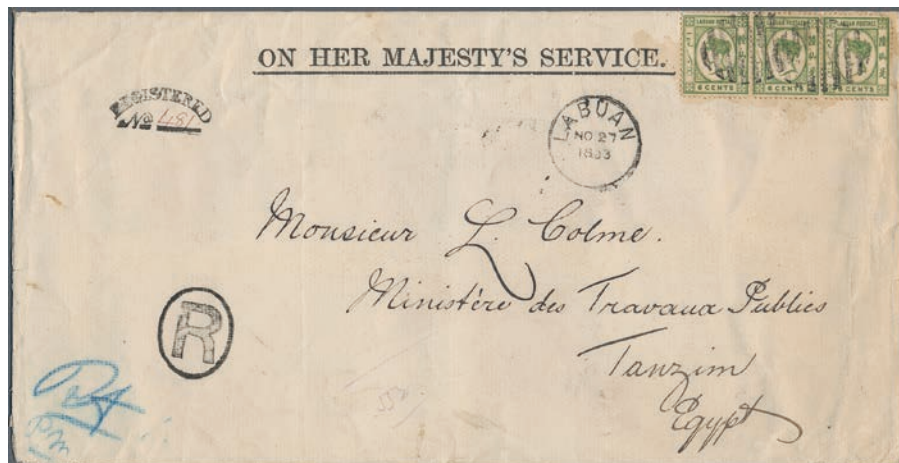 ON HER MAJESTY'S SERVICE.
LABUAN POSTAGE LABUAN POSTAGE LABUAN POSTAGE
6 CENTS 6 CENTS 6 CENTS
REGISTERED
No 481
LABUAN
NO 27
1893
Monsieur L. Colme.
Ministère des Travaux Publics
Tanzim
Egypt
R